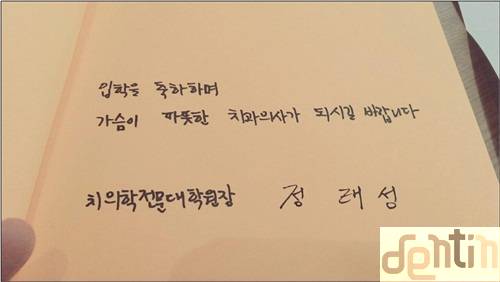 입학을 축하하며
가슴이 따뜻한 치과의사가 되시길 바랍니다
치의학전문대학원장 정태성
dentin